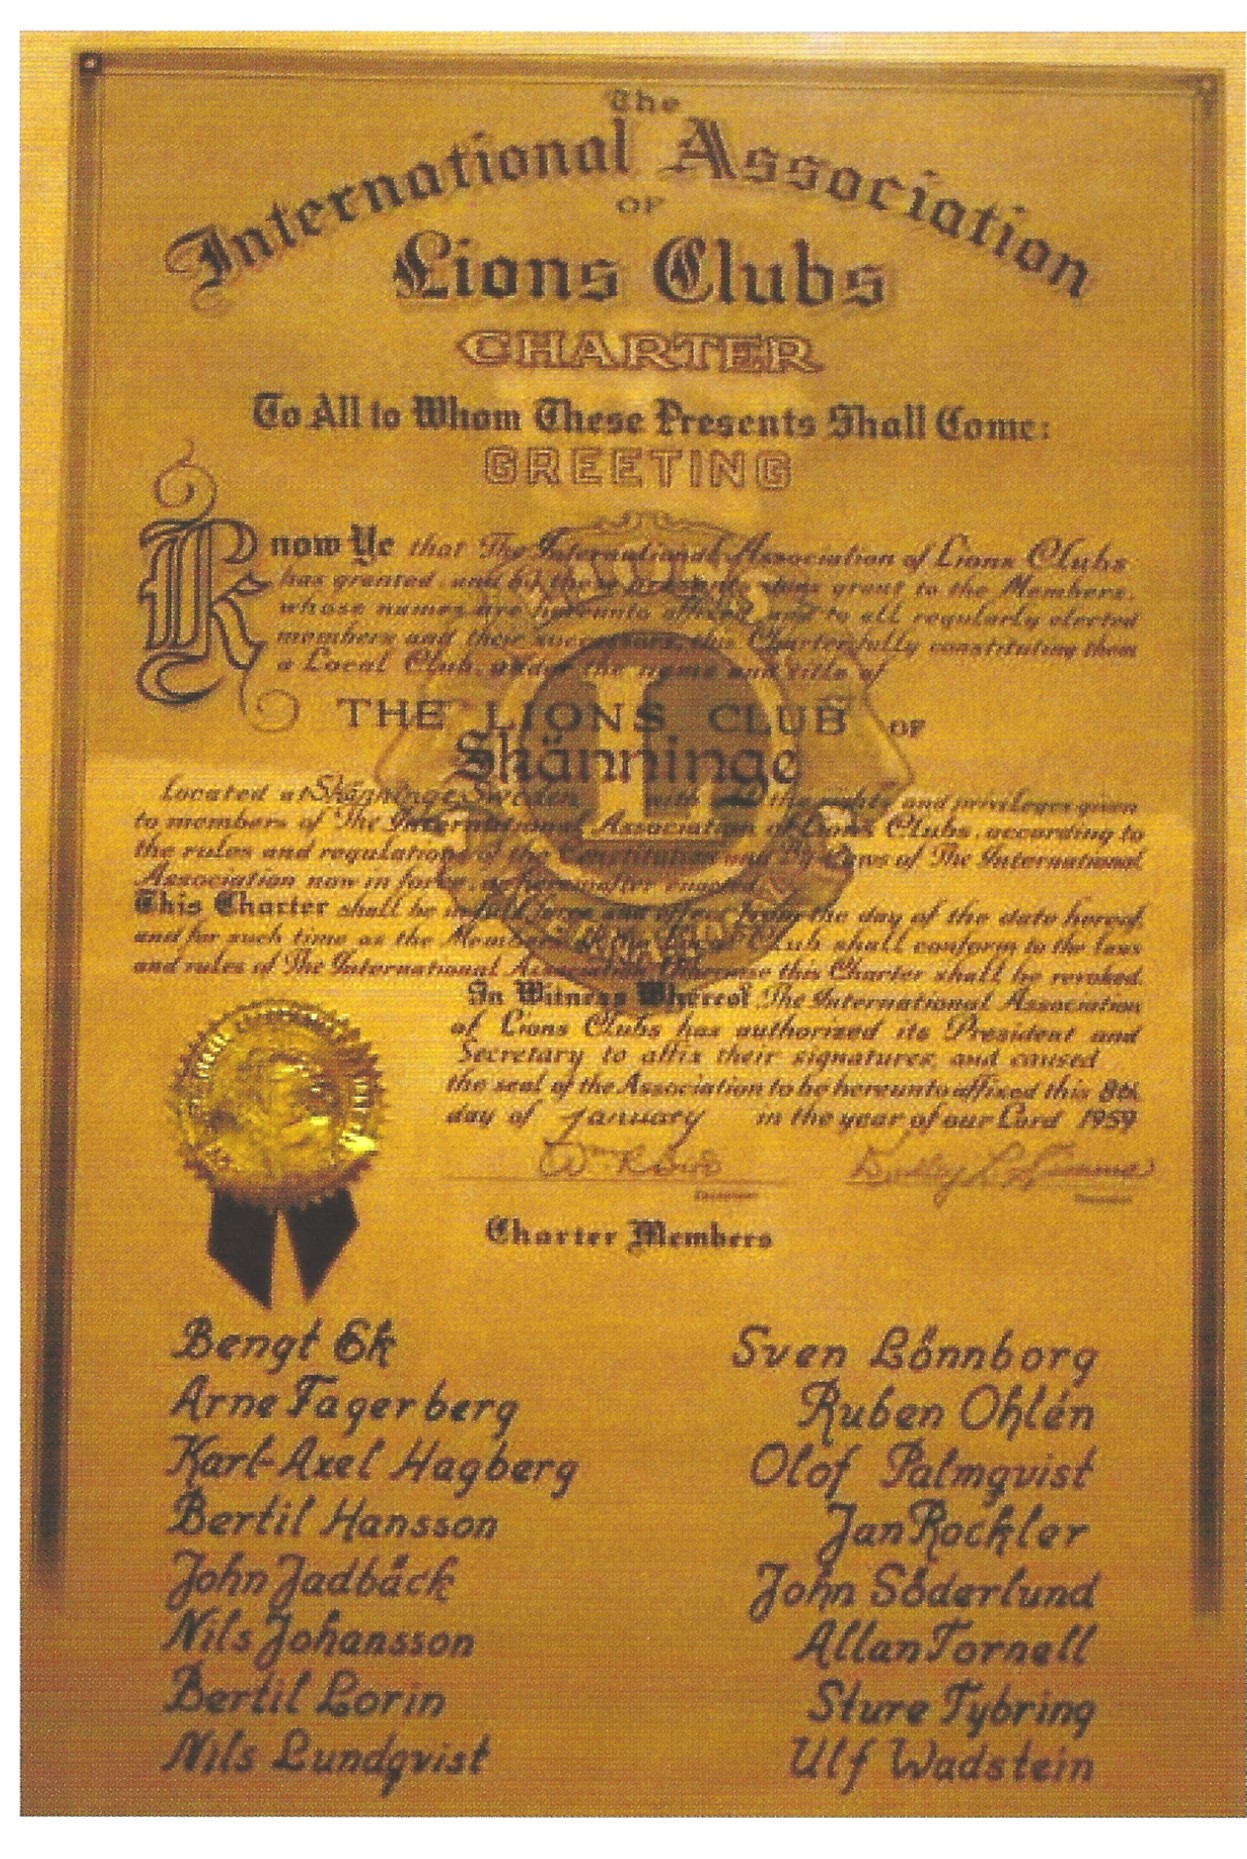 The
International Association
OF
Lions Clubs
CHARTER
To All to Whom These Presents Shall Come:
GREETING
Know Ye that The International Association of Lions Clubs
has granted, and by these presents does grant to the Members,
whose names are hereunto affixed, and to all regularly elected
members and their successors, this Charter, fully constituting them
a Local Club, under the name and title of
THE LIONS CLUB OF
Skänninge
Located at Skänninge, Sweden with the rights and privileges given
to members of The International Association of Lions Clubs, according to
the rules and regulations of the Constitution and By-Laws of The International
Association now in force, or hereinafter enacted.
This Charter shall be in full force and effect from the day of the date hereof,
and for such time as the Members of the Local Club shall conform to the laws
and rules of The International Association. Otherwise this Charter shall be revoked.
In Witness Whereof, The International Association
of Lions Clubs has authorized its President and
Secretary to affix their signatures, and caused
the seal of the Association to be hereunto affixed this 8th
day of January in the year of our Lord 1959
Charter Members
Bengt Ek
Arne Fagerberg
Karl-Axel Hagberg
Bertil Hansson
John Jadbäck
Nils Johansson
Bertil Lorin
Nils Lundqvist
Sven Lönnborg
Ruben Ohlén
Olof Palmqvist
Jan Rockler
John Söderlund
Allan Tornell
Sture Tybring
Ulf Wadstein